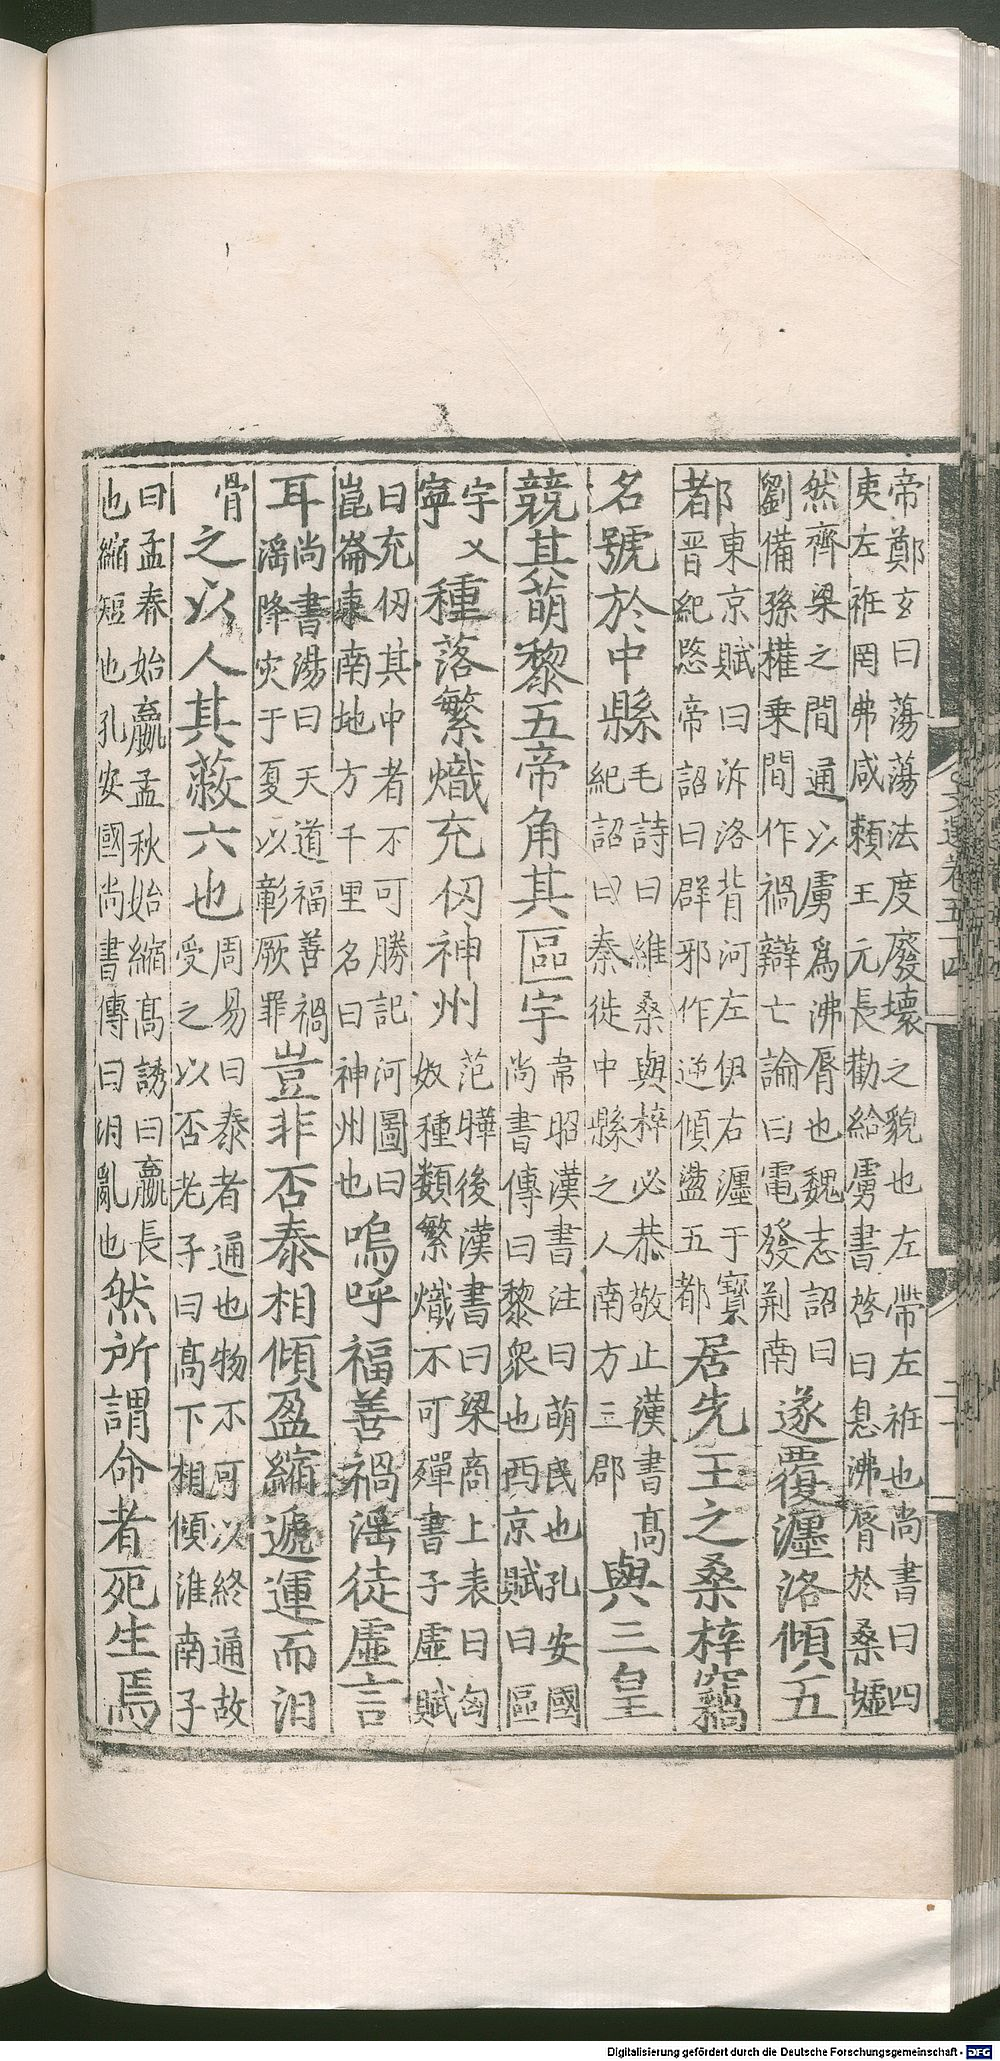 帝鄭玄曰蕩蕩法度廢壞之貌也左帶左袵也尚書曰四
夷左袵罔弗咸賴王元長勸給虜書啓曰息沸脣於桑墟
然齊梁之間通以虜爲沸脣也魏志詔曰
劉備孫權乗間作禍辯亡論曰電發荆南
遂覆瀍洛傾五
都
東京賦曰泝洛背河左伊右瀍于寳
晋紀愍帝詔曰群邪作逆傾盪五都
居先王之桑梓竊
名號於中縣
毛詩曰維桑與梓必恭敬止漢書髙
紀詔曰秦徙中縣之人南方三郡
與三皇
競其萌黎五帝角其區宇
韋昭漢書注曰萌民也孔安國
尚書傳曰黎衆也西京賦曰區
宇乂
寧
種落繁熾充仞神州
范曄後漢書曰梁商上表曰匈
奴種類繁熾不可殫書子虛賦
曰充仞其中者不可勝記河圖曰
崑崙東南地方千里名曰神州也
嗚呼福善禍滛徒虛言
耳
尚書湯曰天道福善禍
滛降灾于夏以彰厥罪
豈非否泰相傾盈縮遞運而汨
骨
之以人其蔽六也
周易曰泰者通也物不可以終通故
受之以否老子曰髙下相傾淮南子
曰孟春始嬴孟秋始縮髙誘曰嬴長
也縮短也孔安國尚書傳曰汨亂也
然所謂命者死生焉
文選卷五十四
Digitalisierung gefördert durch die Deutsche Forschungsgemeinschaft - DFG